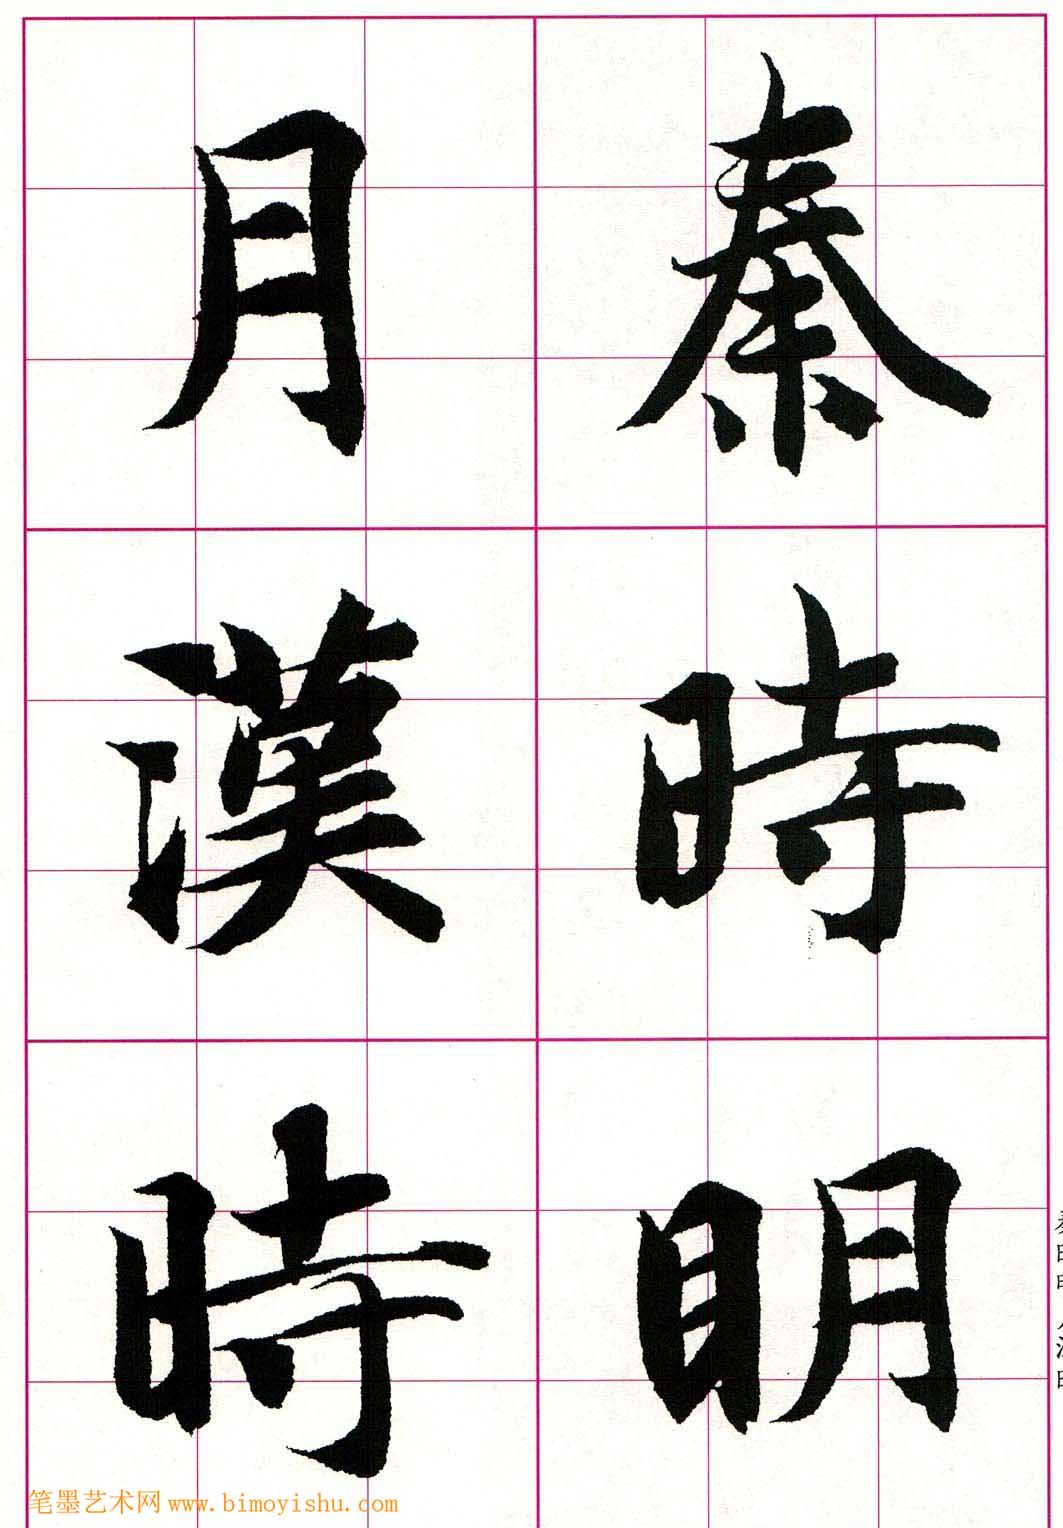 秦時明
月漢時
笔墨艺术网 www.bimoyishu.com